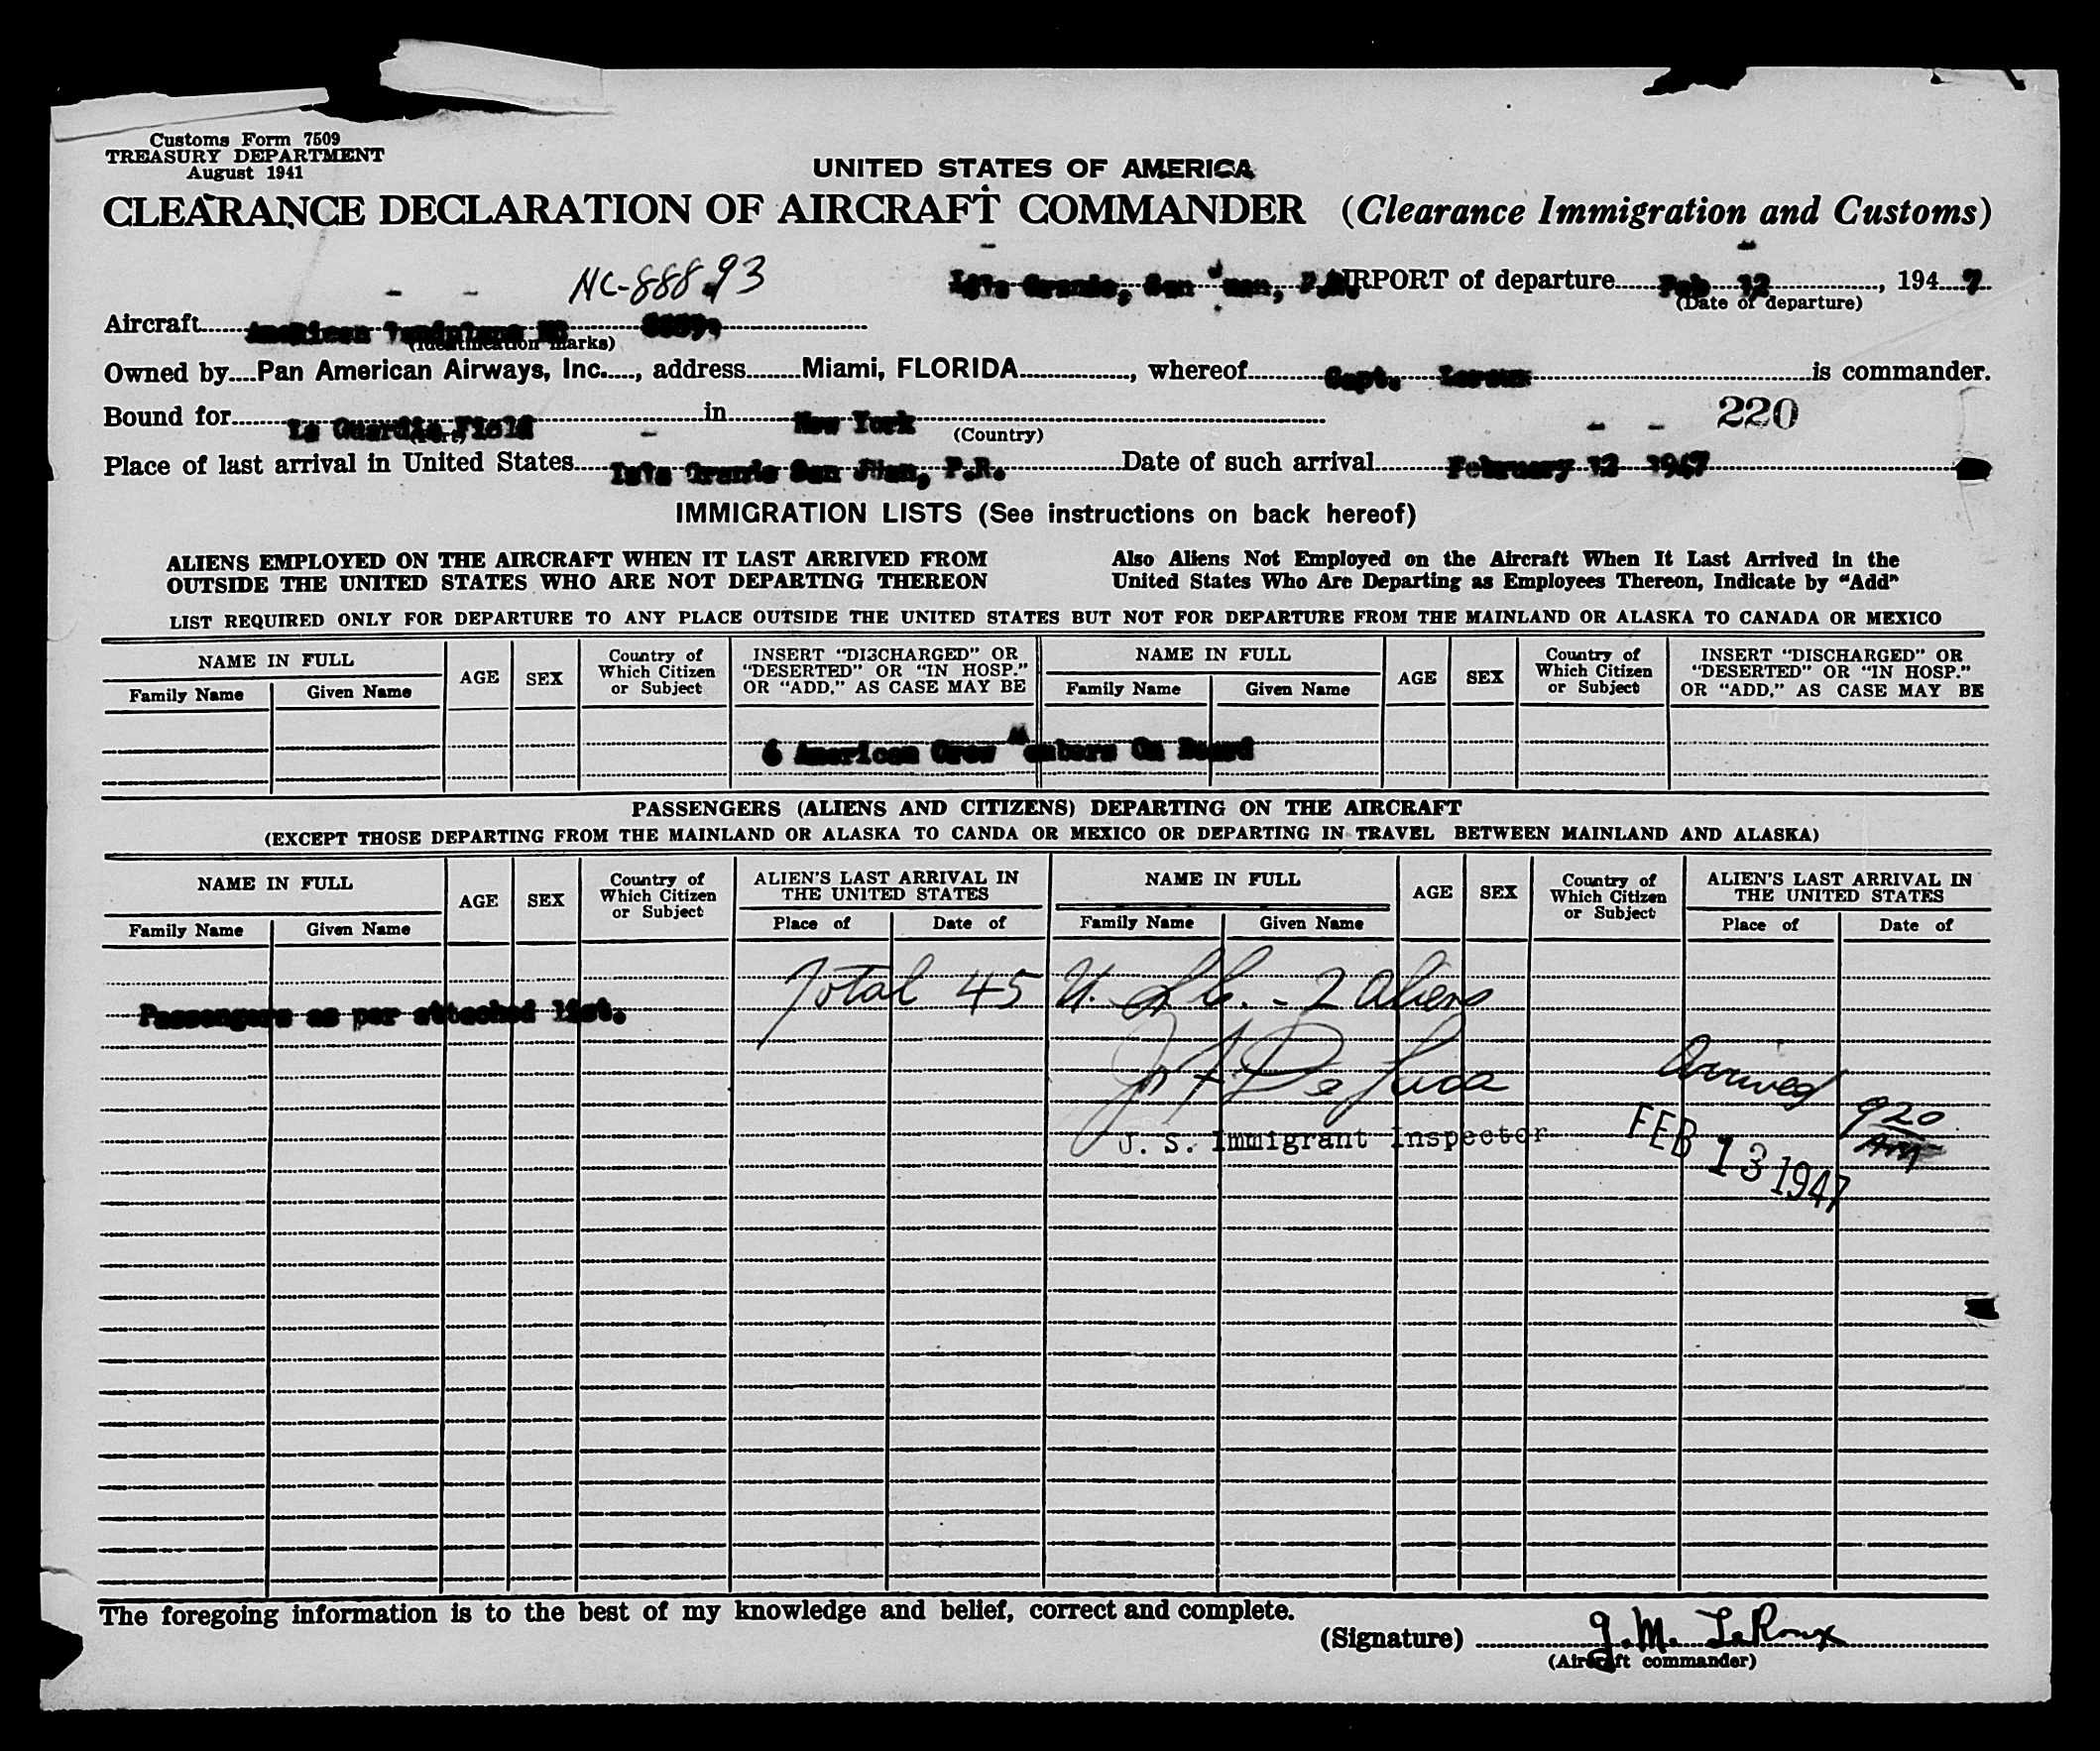 Customs Form 7509
TREASURY DEPARTMENT
August 1941
UNITED STATES OF AMERICA
CLEARANCE DECLARATION OF AIRCRAFT COMMANDER (Clearance Immigration and Customs)
NC-88893
Isla Grande, San Juan, P.R. AIRPORT of departure Feb 12, 1947
(Date of departure)
Aircraft American NC
(Identification marks)
Owned by Pan American Airways, Inc., address Miami, FLORIDA, whereof Capt. Leroux is commander.
Bound for La Guardia Field in New York
(Country)
220
Place of last arrival in United States Isla Grande San Juan, P.R. Date of such arrival February 12 1947
IMMIGRATION LISTS (See instructions on back hereof)
ALIENS EMPLOYED ON THE AIRCRAFT WHEN IT LAST ARRIVED FROM OUTSIDE THE UNITED STATES WHO ARE NOT DEPARTING THEREON
Also Aliens Not Employed on the Aircraft When It Last Arrived in the United States Who Are Departing as Employees Thereon, Indicate by "Add"
LIST REQUIRED ONLY FOR DEPARTURE TO ANY PLACE OUTSIDE THE UNITED STATES BUT NOT FOR DEPARTURE FROM THE MAINLAND OR ALASKA TO CANADA OR MEXICO
NAME IN FULL
Family Name Given Name
AGE
SEX
Country of Which Citizen or Subject
INSERT "DISCHARGED" OR "DESERTED" OR "IN HOSP." OR "ADD," AS CASE MAY BE
NAME IN FULL
Family Name Given Name
AGE
SEX
Country of Which Citizen or Subject
INSERT "DISCHARGED" OR "DESERTED" OR "IN HOSP." OR "ADD," AS CASE MAY BE
6 American Crew Members On Board
PASSENGERS (ALIENS AND CITIZENS) DEPARTING ON THE AIRCRAFT
(EXCEPT THOSE DEPARTING FROM THE MAINLAND OR ALASKA TO CANDA OR MEXICO OR DEPARTING IN TRAVEL BETWEEN MAINLAND AND ALASKA)
NAME IN FULL
Family Name Given Name
AGE
SEX
Country of Which Citizen or Subject
ALIEN'S LAST ARRIVAL IN THE UNITED STATES
Place of Date of
NAME IN FULL
Family Name Given Name
AGE
SEX
Country of Which Citizen or Subject
ALIEN'S LAST ARRIVAL IN THE UNITED STATES
Place of Date of
Total 45 U.S.C. - 2 aliens
Passengers as per attached list.
De Luca
U. S. Immigrant Inspector
Arrived 920 AM
FEB 13 1947
The foregoing information is to the best of my knowledge and belief, correct and complete.
(Signature) J.M. LeRoux
(Aircraft commander)